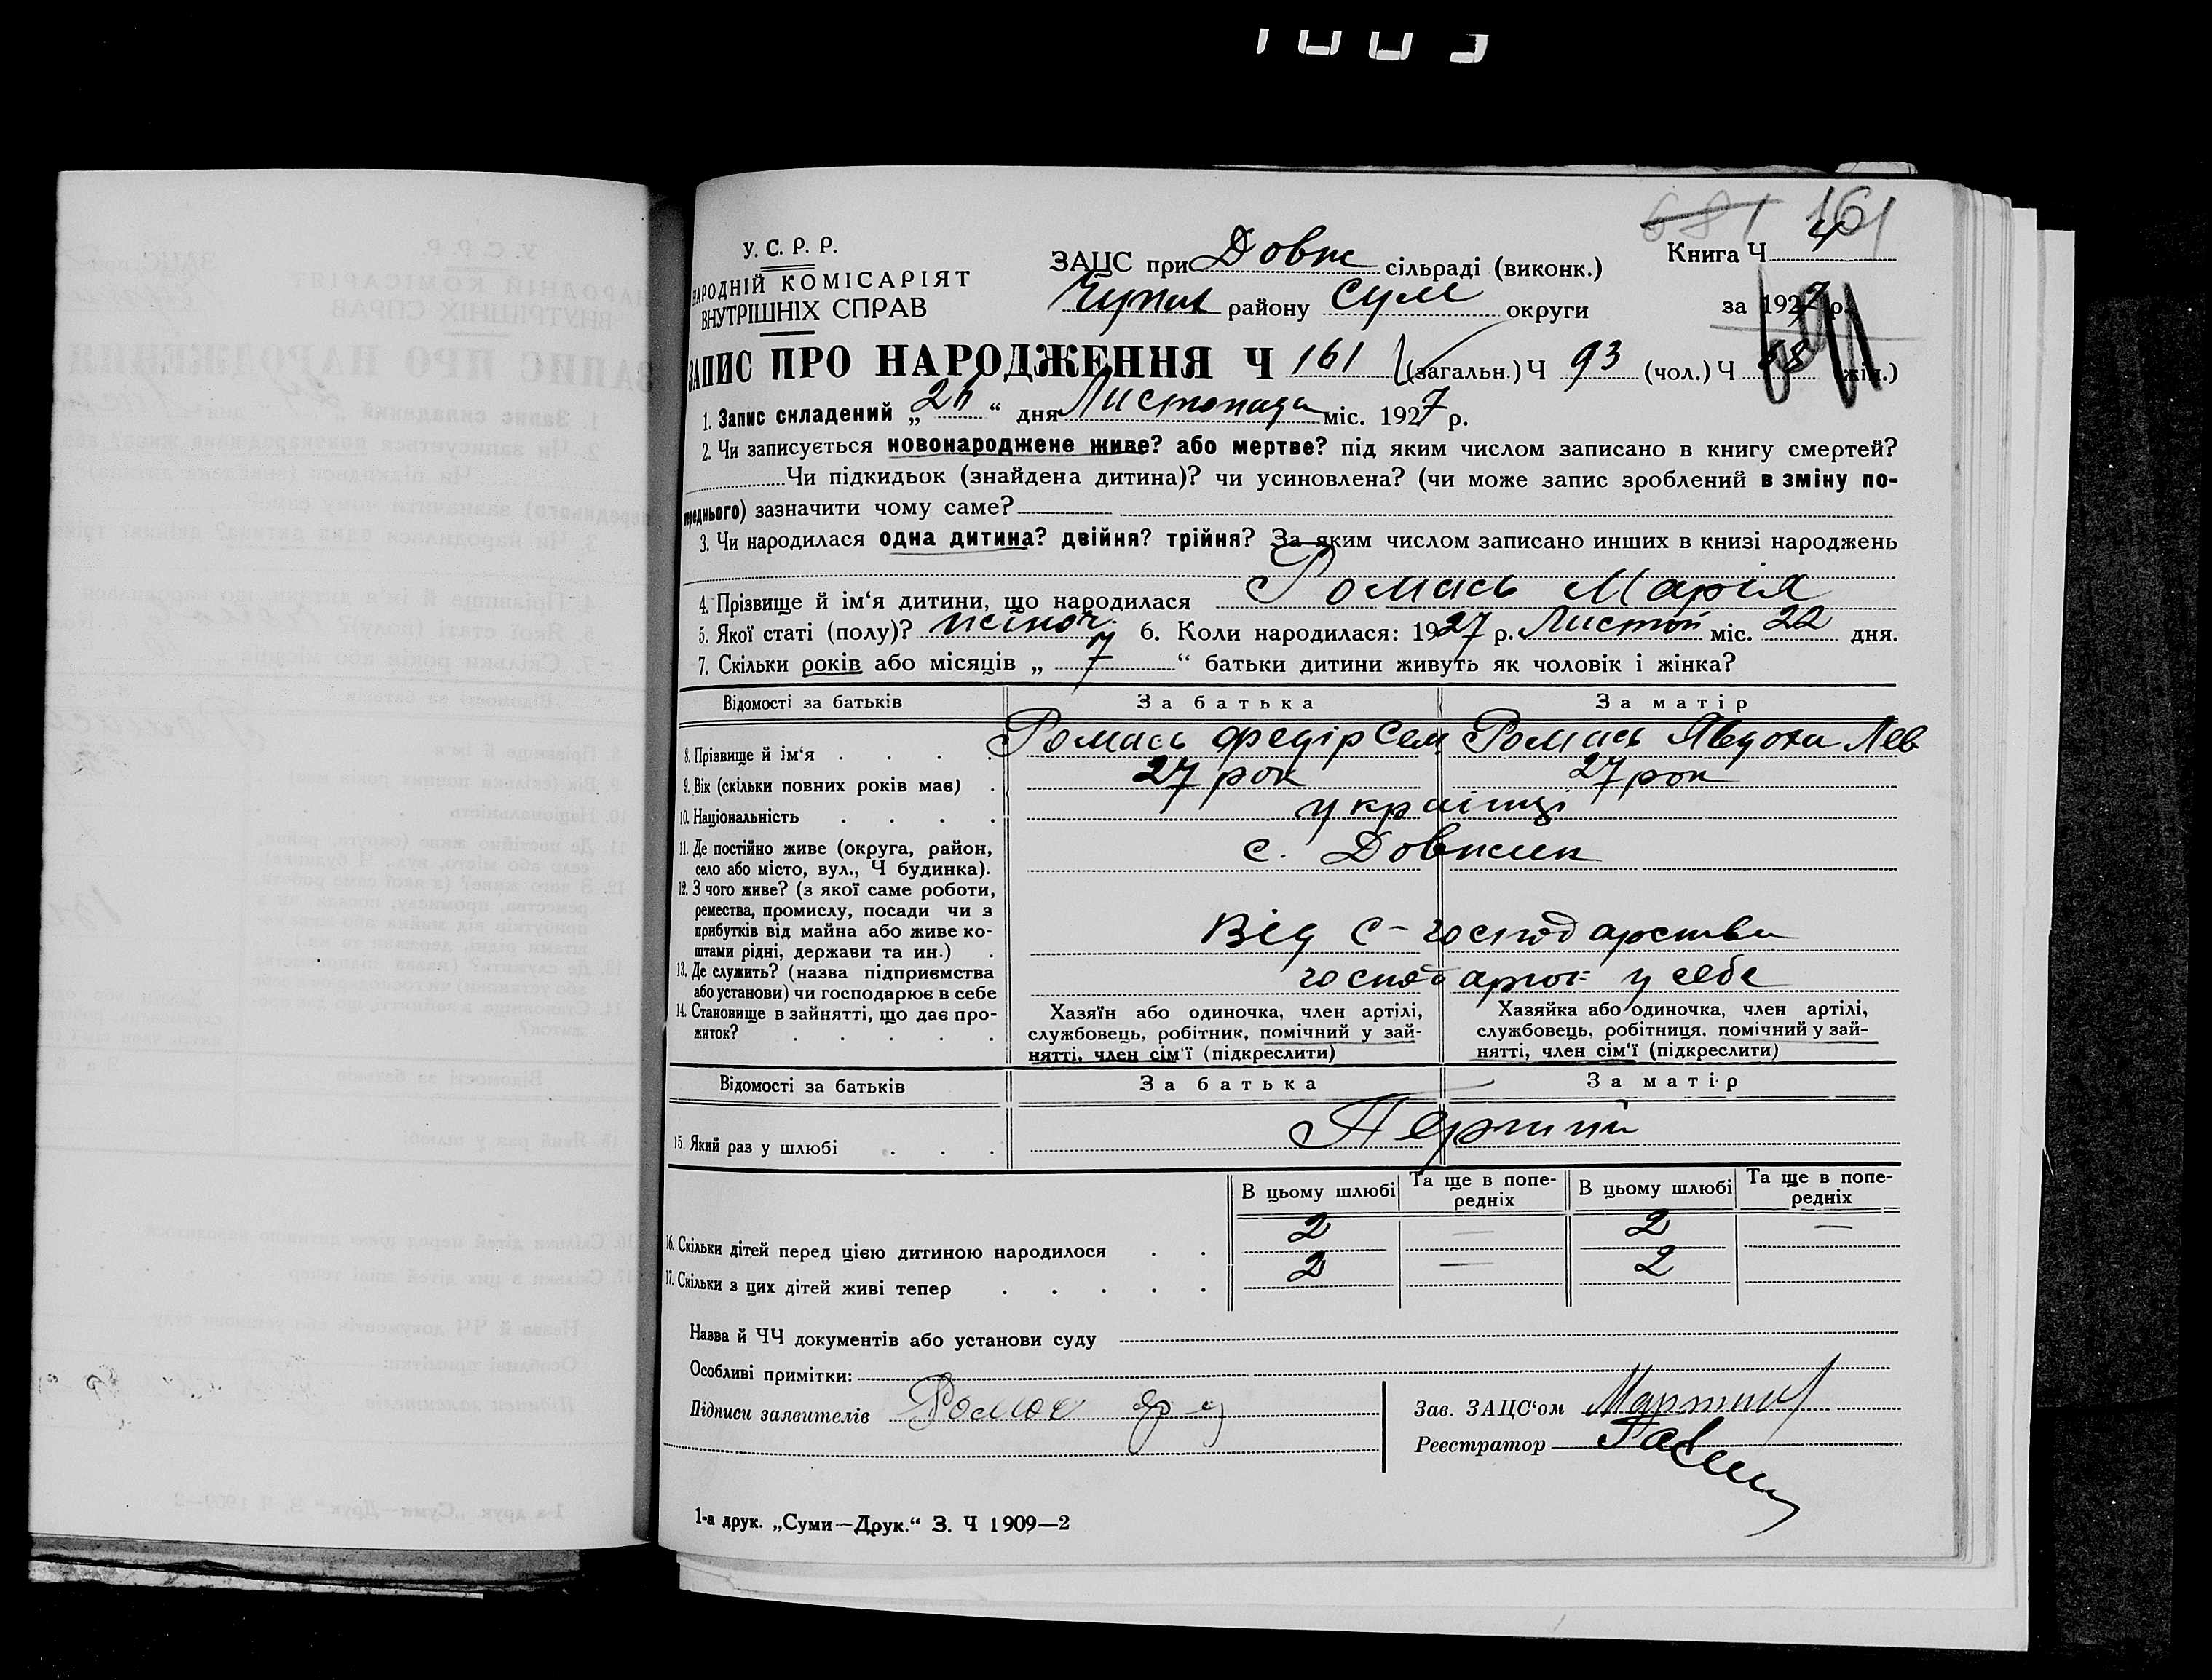 681 161
У. С. Р. Р.
НАРОДНІЙ КОМІСАРІЯТ
ВНУТРІШНІХ СПРАВ
ЗАЦС при Довж сільраді (виконк.)
Чупах району Сум округи
Книга Ч
за 1927 р.
ЗАПИС ПРО НАРОДЖЕННЯ Ч 161 (загальн.) Ч 93 (чол.) Ч 68 (жін.)
1. Запис складений „ “ дня Листопада міс. 1927 р.
2. Чи записується новонароджене живе? або мертве? під яким числом записано в книгу смертей?
Чи підкидьок (знайдена дитина)? чи усиновлена? (чи може запис зроблений в зміну по-
переднього) зазначити чому саме?
3. Чи народилася одна дитина? двійня? трійня? За яким числом записано инших в книзі народжень
4. Прізвище й ім‘я дитини, що народилася Ромась Марія
5. Якої статі (полу)? жіноч. 6. Коли народилася: 1927 р. Листоп міс. 22 дня.
7. Скільки років або місяців „ 7 “ батьки дитини живуть як чоловік і жінка?
Відомості за батьків За батька За матір
8. Прізвище й ім‘я . . . . Ромась Федір Сем Ромась Явдоха Лев
9. Вік (скільки повних років має) . 27 рок 27 рок
10. Національність . . . . українці
11. Де постійно живе (округа, район,
село або місто, вул., Ч будинка).
с. Довжик
12. З чого живе? (з якої саме роботи,
ремества, промислу, посади чи з
прибутків від майна або живе ко-
штами рідні, держави та ин.) .
Від с-господарства
13. Де служить? (назва підприємства
або установи) чи господарює в себе
господарює у себе
14. Становище в зайнятті, що дає про-
житок? . . . . .
Хазяїн або одиночка, член артілі,
службовець, робітник, помічний у зай-
нятті, член сім‘ї (підкреслити)
Хазяйка або одиночка, член артілі,
службовець, робітниця, помічний у зай-
нятті, член сім‘ї (підкреслити)
Відомості за батьків За батька За матір
15. Який раз у шлюбі . . . Перший
В цьому шлюбі Та ще в попе-
редніх В цьому шлюбі Та ще в попе-
редніх
16. Скільки дітей перед цією дитиною народилося . . 2 — 2 —
17. Скільки з цих дітей живі тепер . . . . . 2 — 2
Назва й ЧЧ документів або установи суду
Особливі примітки:
Підписи заявителів Ромас
Зав. ЗАЦС‘ом
Реєстратор
1-а друк. „Суми—Друк.“ З. Ч 1909—2